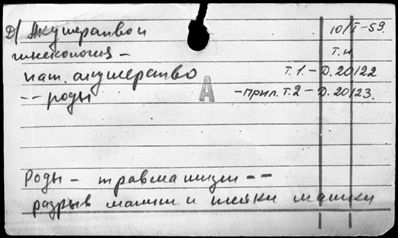 Д/ Акушерство и 10/I-59.
гинекология - т.н.
пат. акушерство т.1.-D.20122
-"- роды А -прил. т.2-D.20123.
Роды - травматизм --
разрыв матки и шейки матки